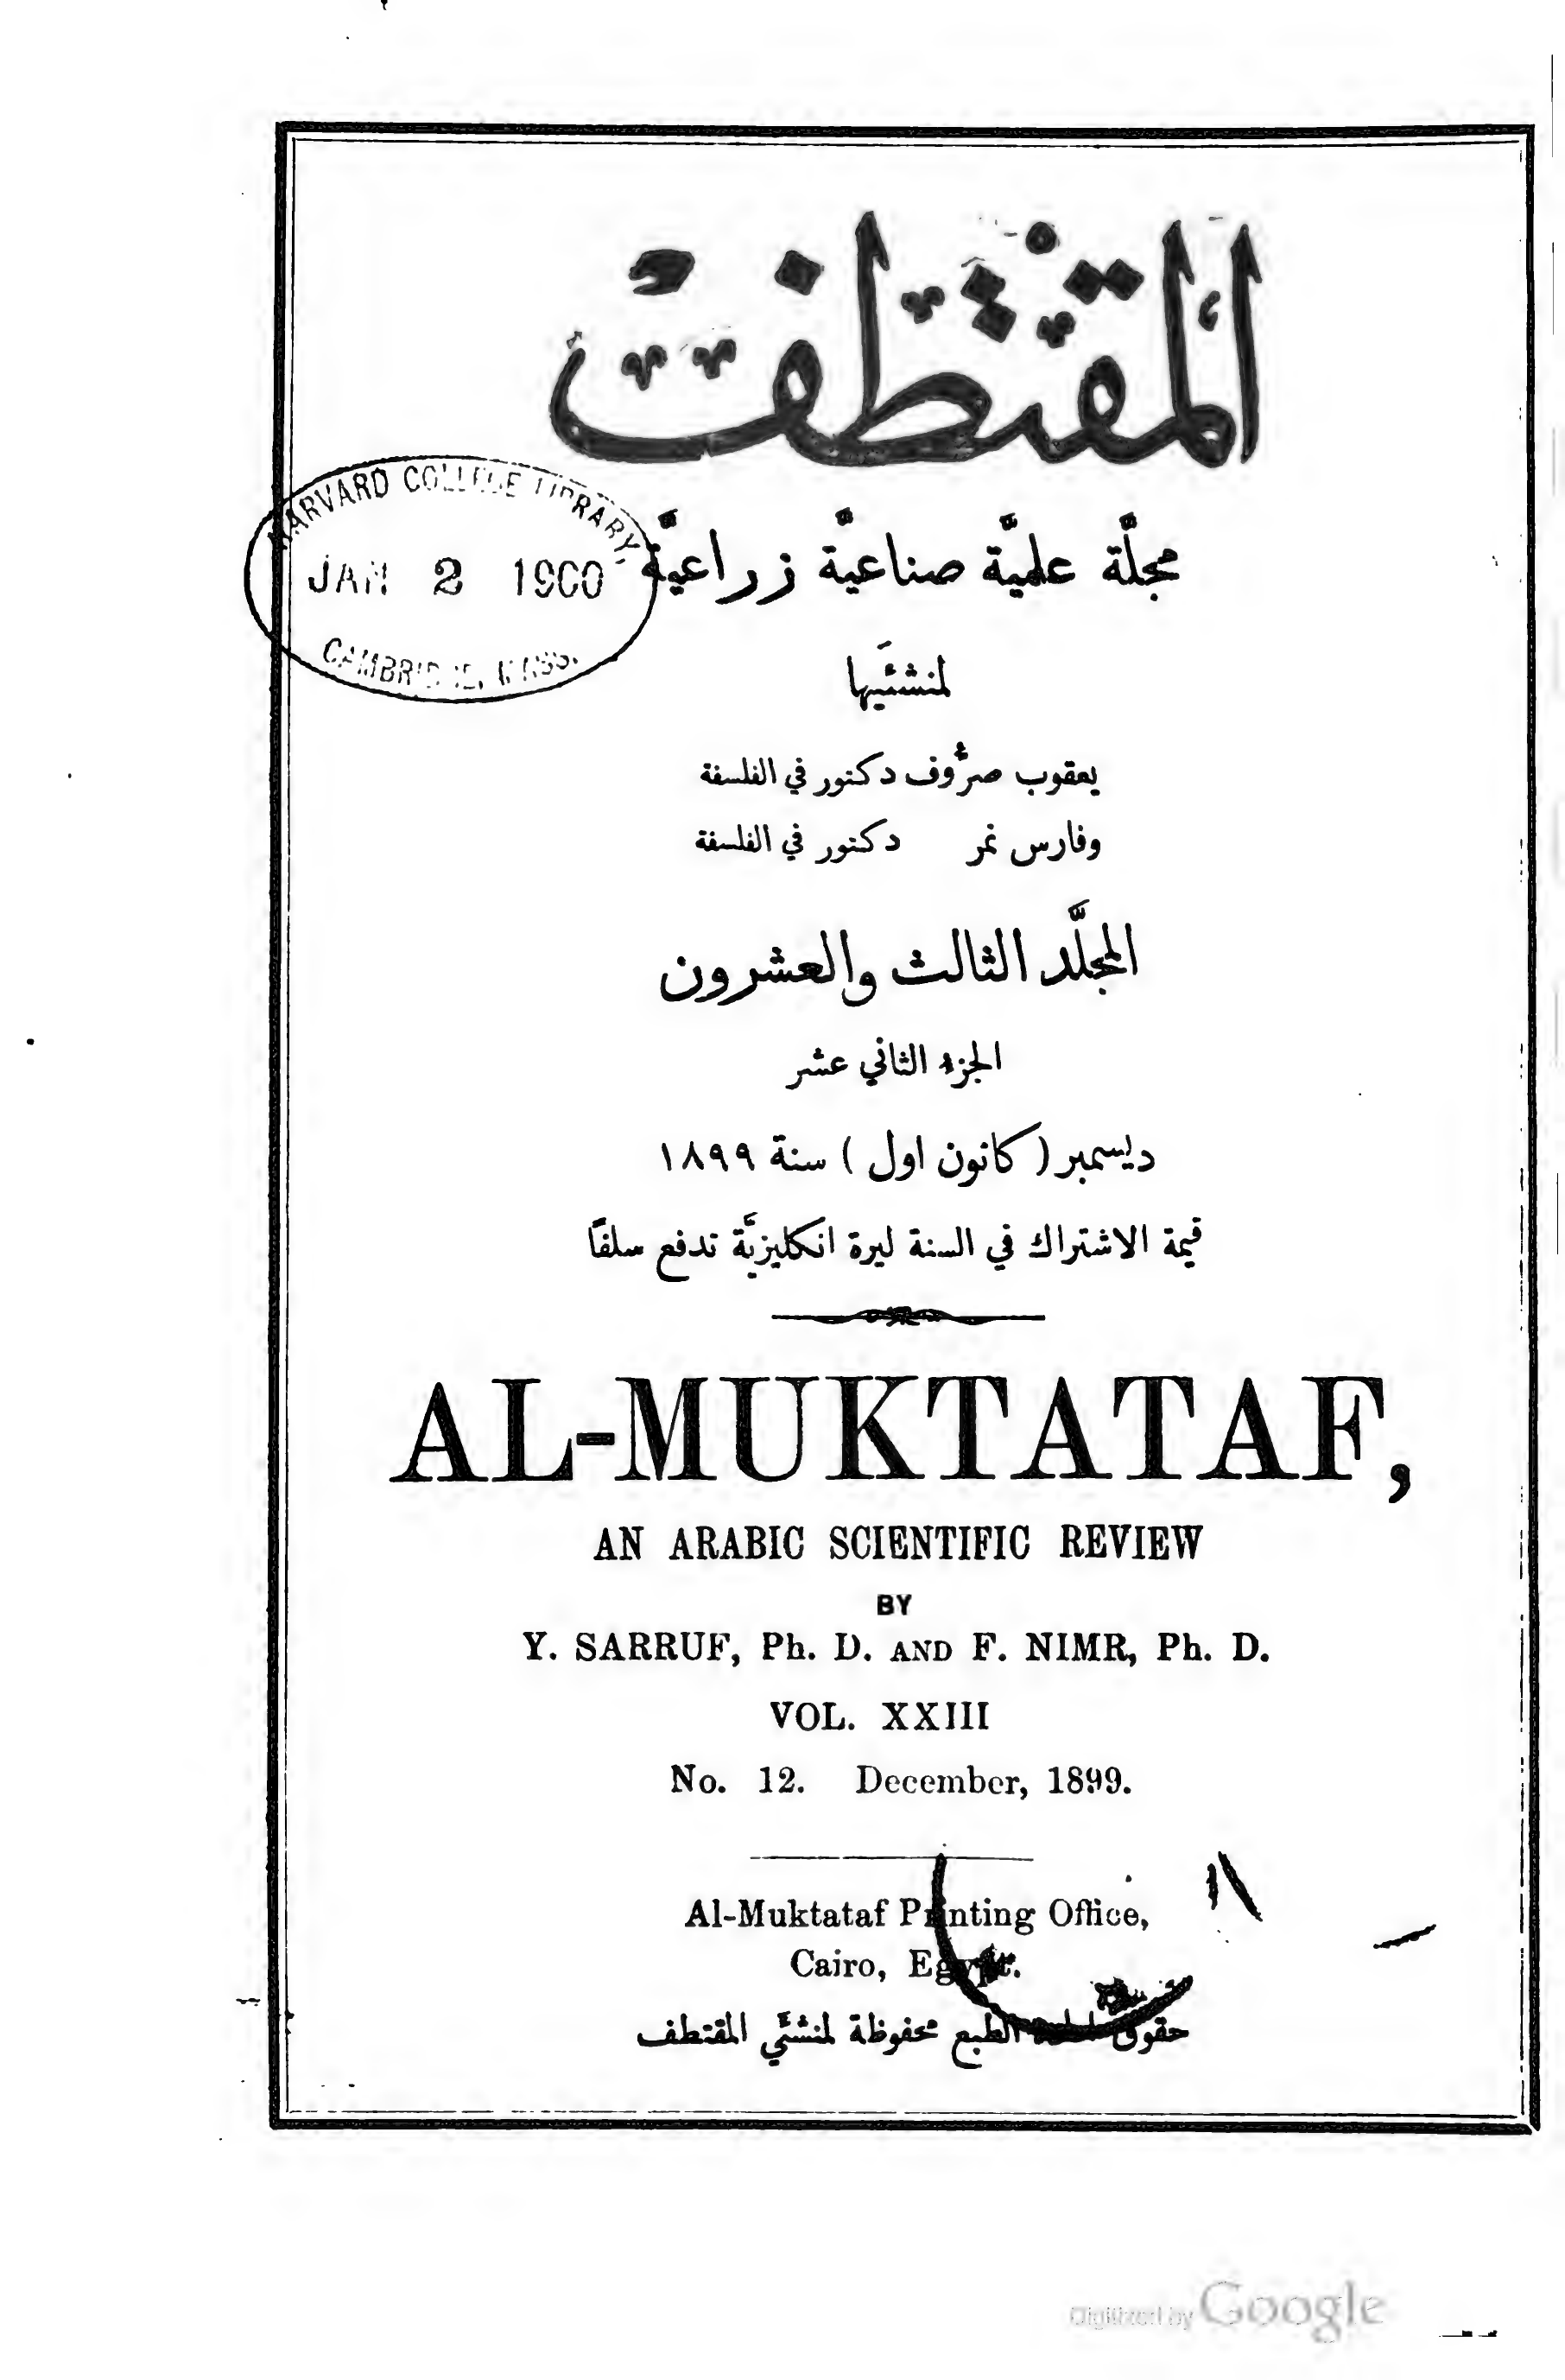 المقتطف
مجلَّة علميَّة صناعيَّة زراعيَّة
HARVARD COLLEGE LIBRARY,
JAN 2 1900
CAMBRIDGE, MASS.
لمنشئَيها
يعقوب صرُّوف دكتور في الفلسفة
وفارس نمر دكتور في الفلسفة
المجلَّد الثالث والعشرون
الجزء الثاني عشر
ديسمبر (كانون اول) سنة ١٨٩٩
قيمة الاشتراك في السنة ليرة انكليزيَّة تدفع سلفًا
AL-MUKTATAF,
AN ARABIC SCIENTIFIC REVIEW
BY
Y. SARRUF, Ph. D. AND F. NIMR, Ph. D.
VOL. XXIII
No. 12. December, 1899.
Al-Muktataf Printing Office,
Cairo, Egypt.
حقوق الطبع محفوظة لمنشئَي المقتطف
Digitized by Google